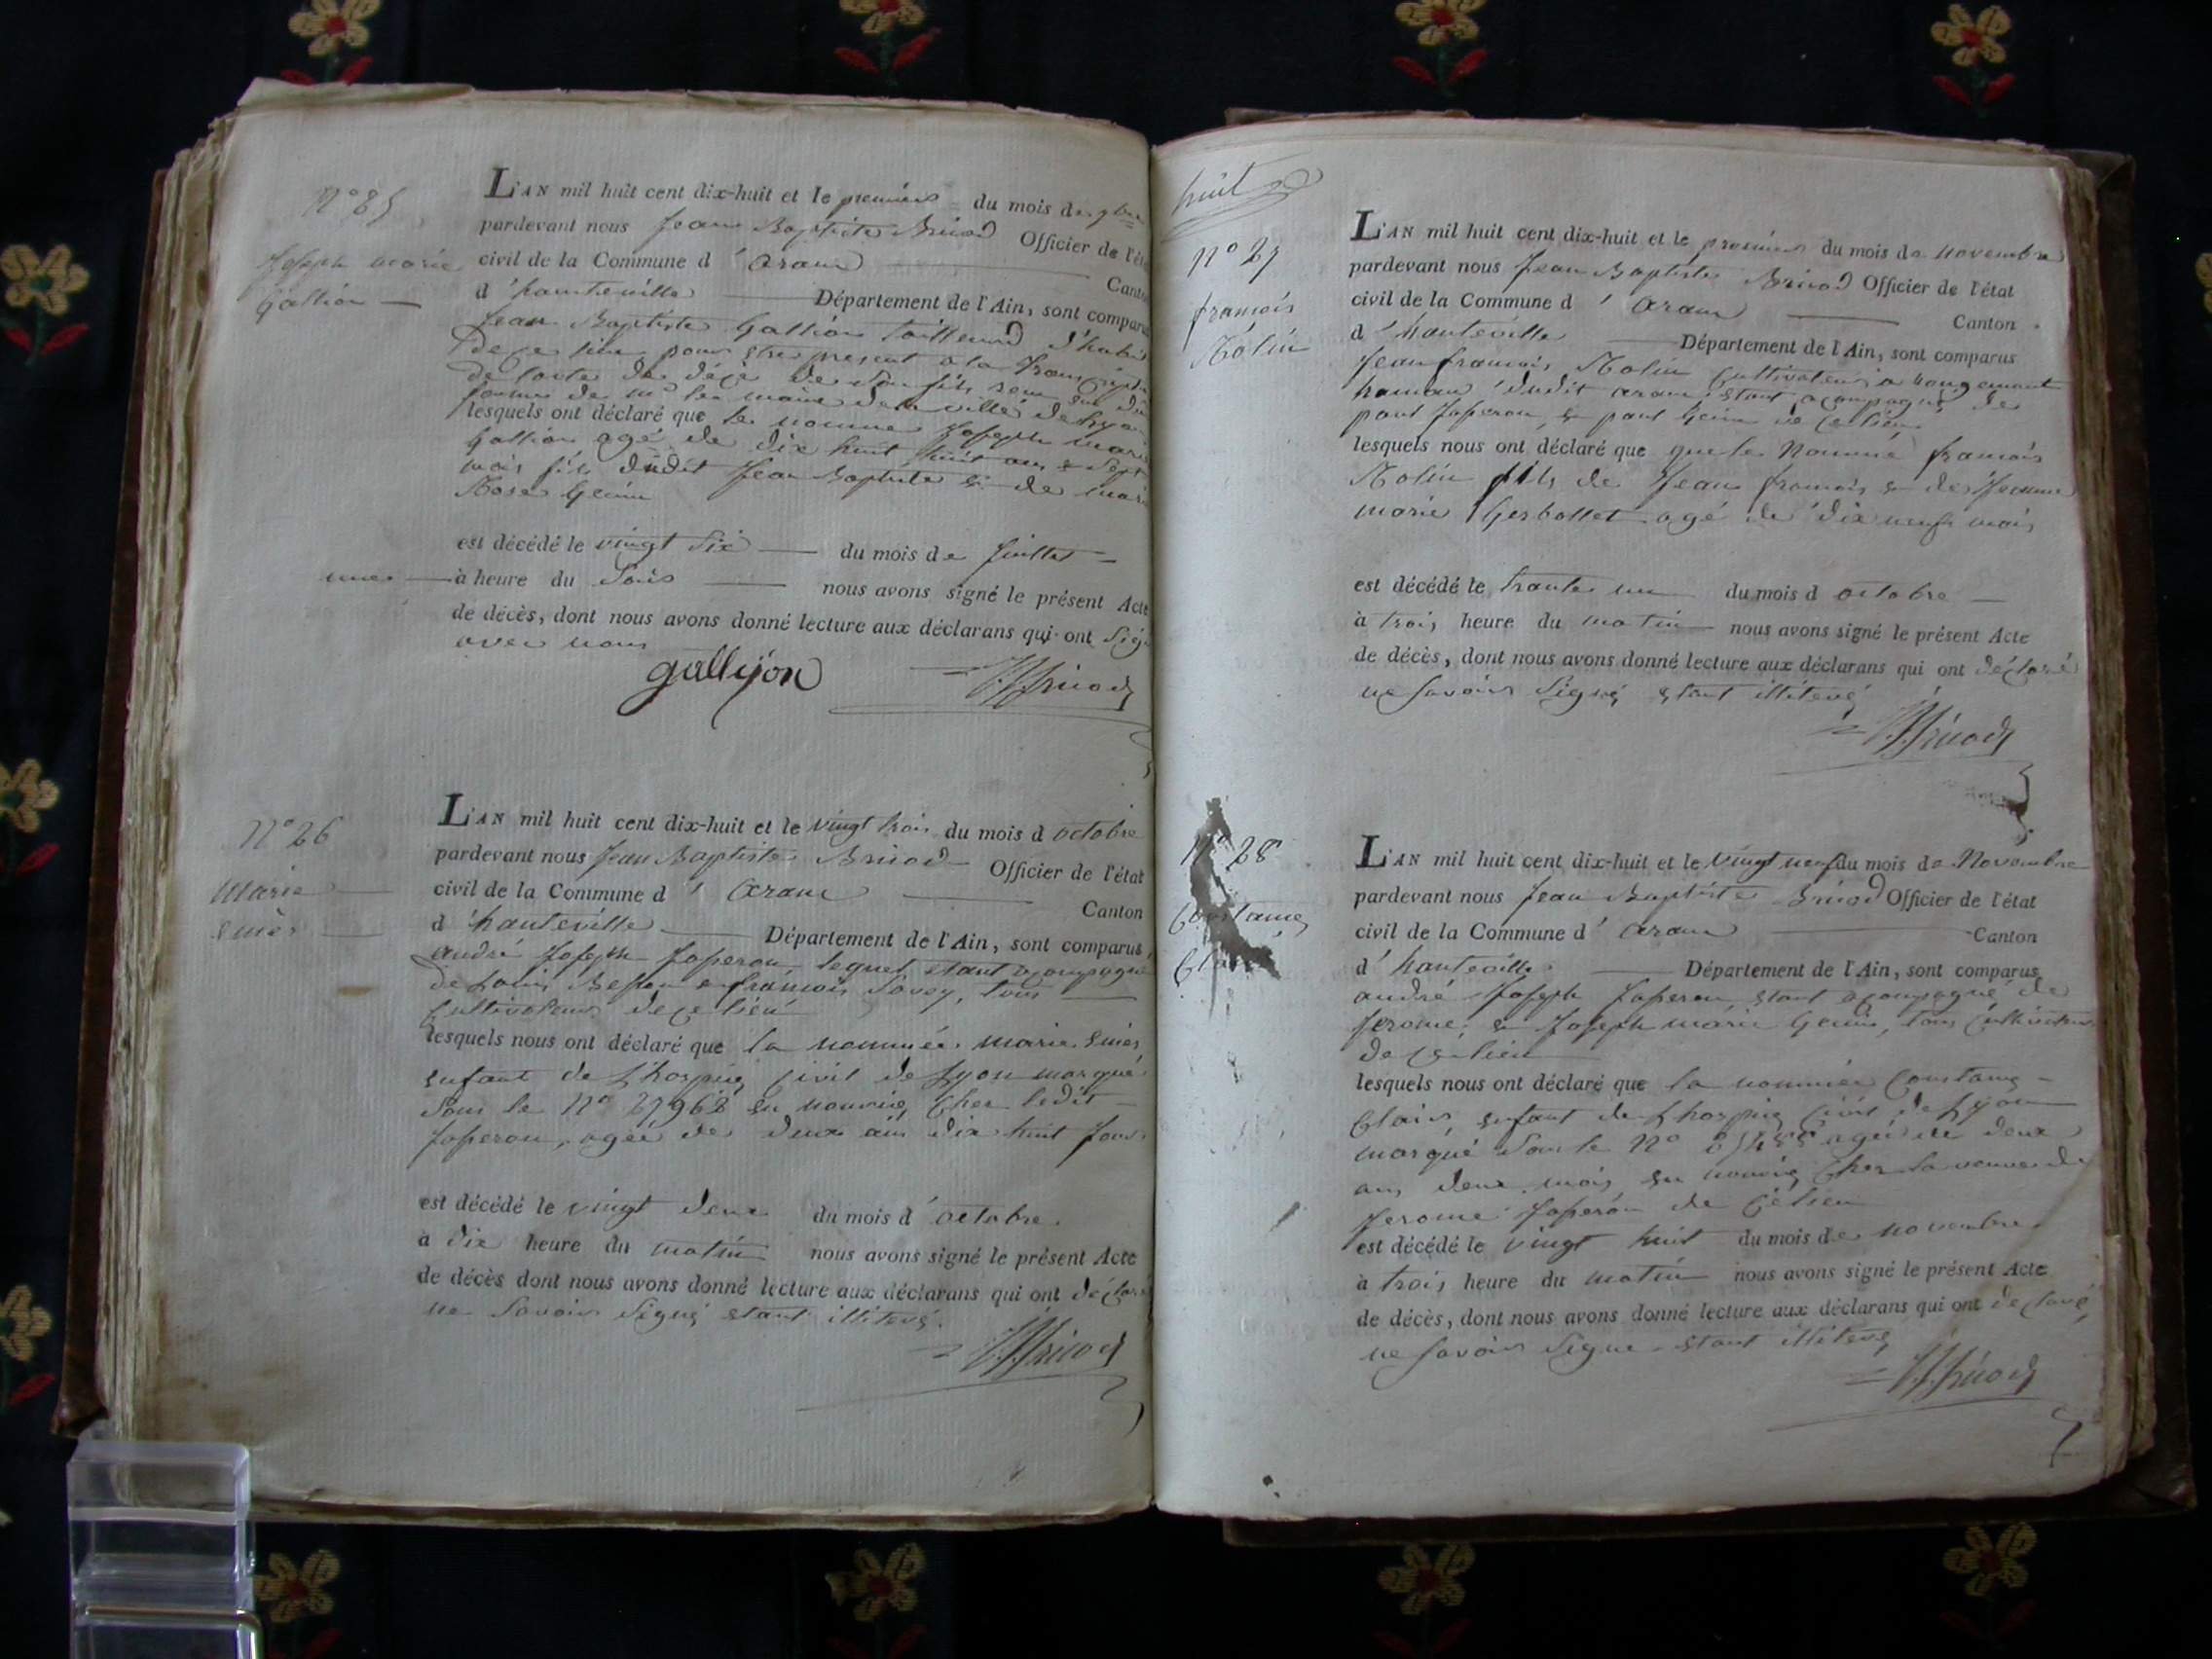 N° 25
Joseph marie
Gallion
L'AN mil huit cent dix-huit et le premier du mois de 9bre
pardevant nous Jean Baptiste Brisod Officier de l'état
civil de la Commune d'aranc
Canton
d'hauteville Département de l'Ain, sont comparus
Jean Baptiste Gallion tailleur d'habit
de ce lieu pour etre present a la
de de son fils
de mr le maire de la ville de Lyon
lesquels ont déclaré que le nommé Joseph marie
Gallion agé de dix huit ans & Sept
mois fils dudit Jean Baptiste & de marie
Rose Genin
est décédé le vingt Six du mois de Juillet
une à heure du Soir nous avons signé le présent Acte
de décès, dont nous avons donné lecture aux déclarans qui ont Signé
avec nous
gallijon
N° 26
Marie
L'AN mil huit cent dix-huit et le vingt trois du mois d octobre
pardevant nous Jean Baptiste Brisod Officier de l'état
civil de la Commune d'aranc
Canton
d'hauteville Département de l'Ain, sont comparus,
andré Joseph Joperon lequel etant acompagné
de Louis & francois Savey, tous
Cultivateurs de ce lieu
lesquels nous ont déclaré que la nommée marie
enfant de Lhospice civil de Lyon marqué
Sous le N° 27962 en nourice Cher ledit
Joperon, agée de deux ans dix huit Jour
est décédé le vingt deux du mois d'octobre.
à dix heure du matin nous avons signé le présent Acte
de décès dont nous avons donné lecture aux déclarans qui ont déclaré
ne Savoir Signé etant illiteré.
huit
N° 27
francois
Rolin
L'AN mil huit cent dix-huit et le premier du mois de Novembre
pardevant nous Jean Baptiste Brisod Officier de l'état
civil de la Commune d'aranc
Canton
d'hauteville Département de l'Ain, sont comparus
Jean francois Rolin Cultivateur a rougemont
hamau dudit aranc etant acompagné de
paul Joperon, & paul Genin de ce lieu
lesquels nous ont déclaré que que le Nommé francois
Rolin fils de Jean francois & de Jeanne
marie Gerbollet agé de dix neuf mois
est décédé le trante un du mois d octobre
à trois heure du matin nous avons signé le présent Acte
de décès, dont nous avons donné lecture aux déclarans qui ont déclaré
ne Savoir Signé etant illiteré
N° 28
Constance
L'AN mil huit cent dix-huit et le Vingt neuf du mois de Novembre
pardevant nous Jean Baptiste Brisod Officier de l'état
civil de la Commune d'aranc
Canton
d'hauteville Département de l'Ain, sont comparus,
andré Joseph Joperon etant acompagné de
Jerome & Joseph marie Genin, tous Cultivateur
de ce lieu
lesquels nous ont déclaré que la nommée Constance
Clair, enfant de Lhospice civil de Lyon
marqué Sous le N° agée de deux
ans deux mois en nourice Cher la veuve de
Jerome Joperon de Ce lieu
est décédé le vingt huit du mois de novembre
à trois heure du matin nous avons signé le présent Acte
de décès, dont nous avons donné lecture aux déclarans qui ont declaré
ne Savoir Signé etant illiteré